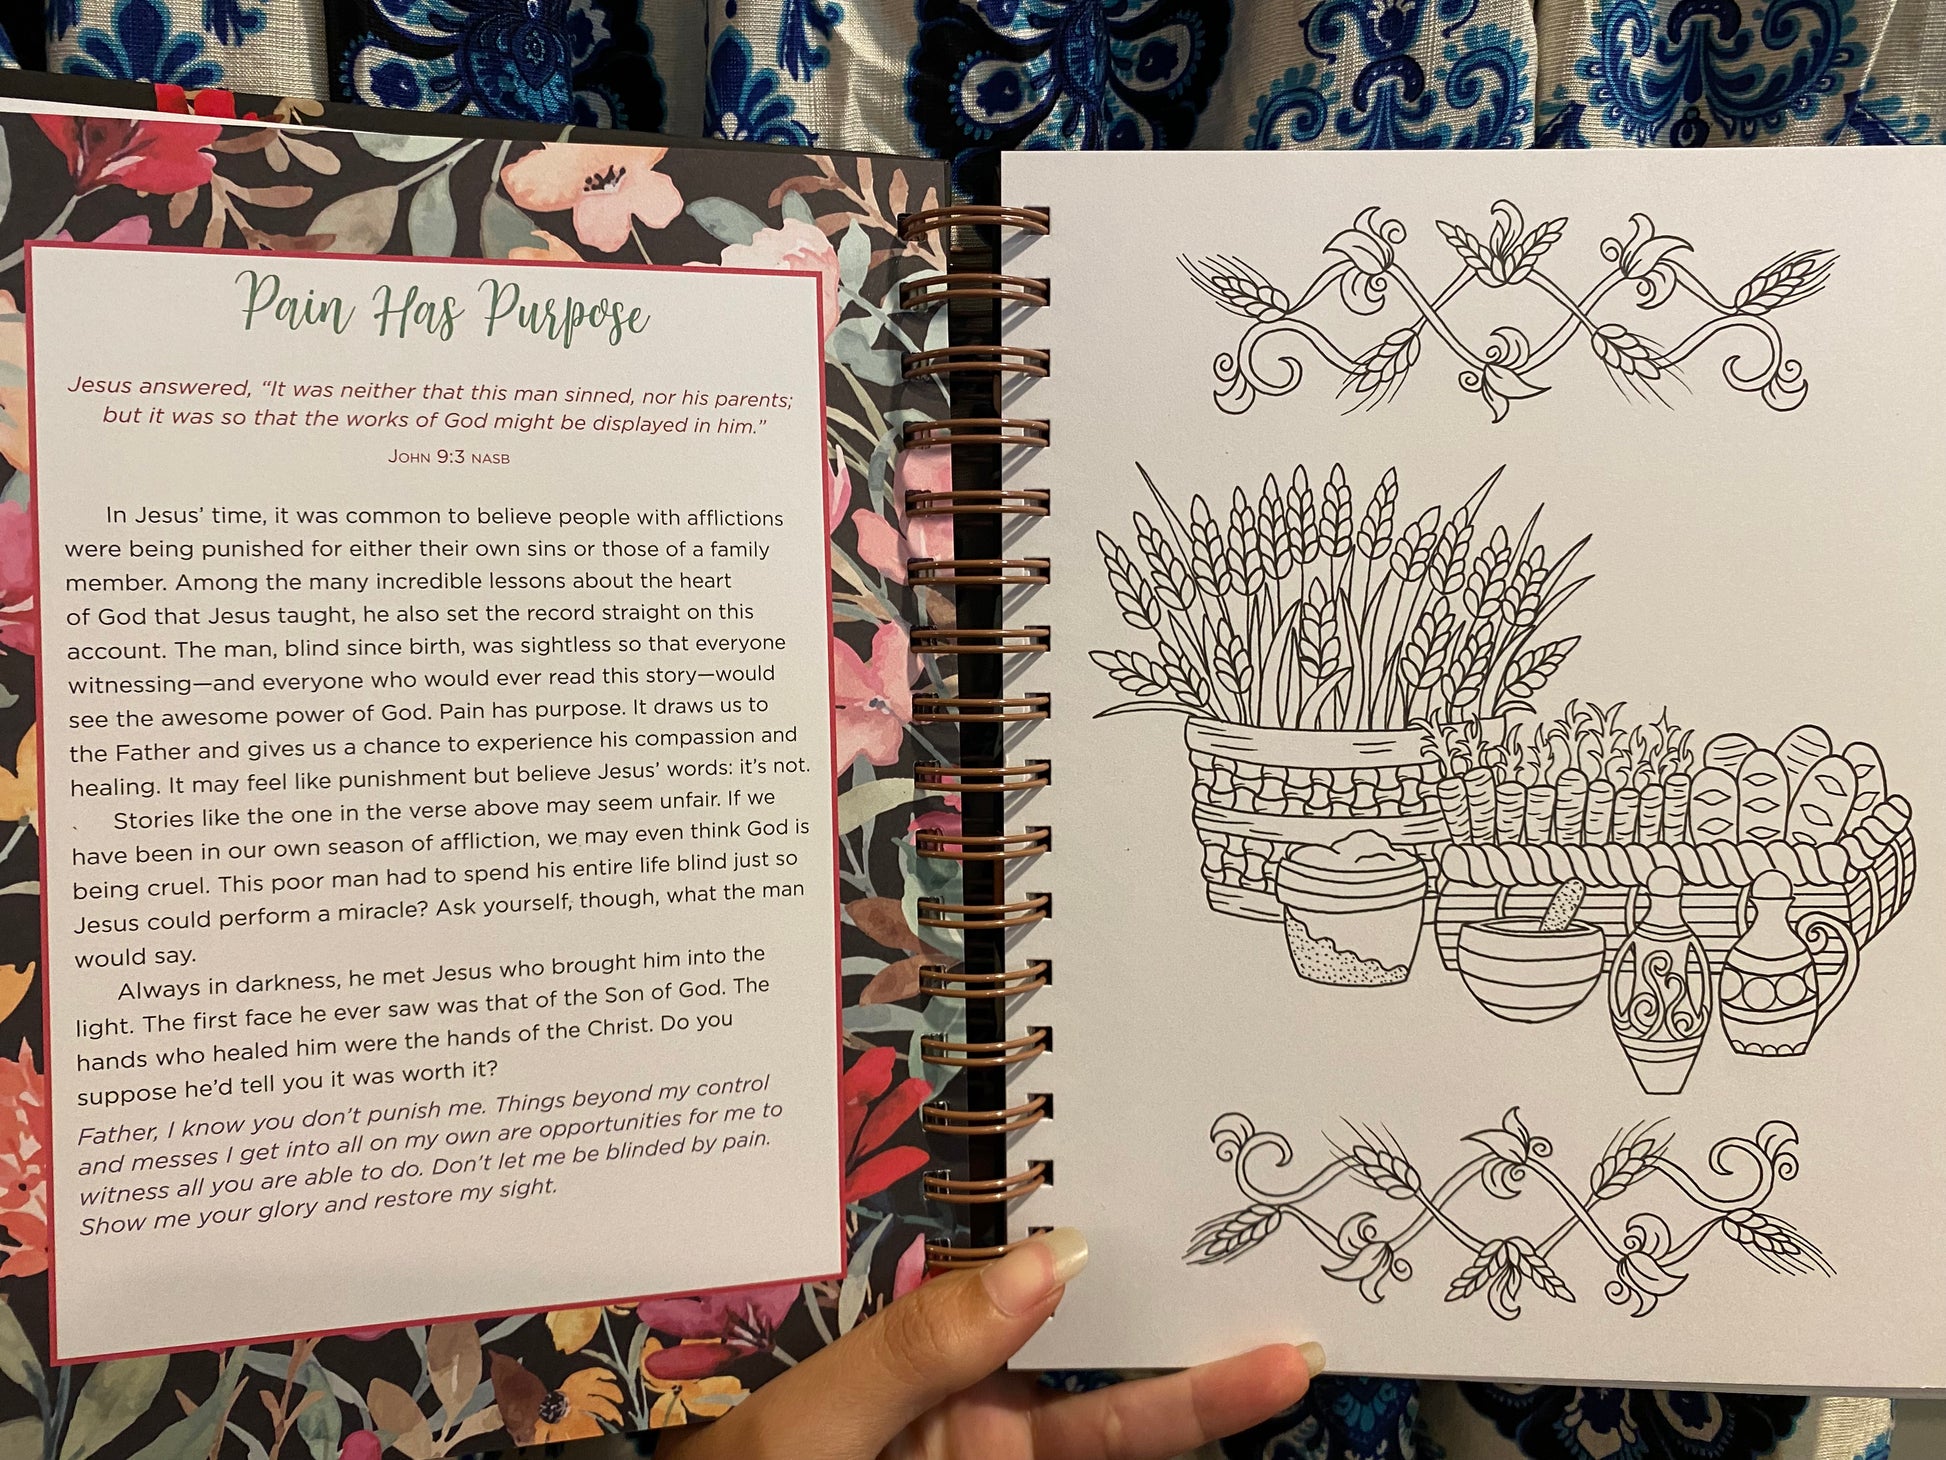 Pain Has Purpose
Jesus answered, “It was neither that this man sinned, nor his parents;
but it was so that the works of God might be displayed in him.”
John 9:3 NASB
In Jesus’ time, it was common to believe people with afflictions
were being punished for either their own sins or those of a family
member. Among the many incredible lessons about the heart
of God that Jesus taught, he also set the record straight on this
account. The man, blind since birth, was sightless so that everyone
witnessing—and everyone who would ever read this story—would
see the awesome power of God. Pain has purpose. It draws us to
the Father and gives us a chance to experience his compassion and
healing. It may feel like punishment but believe Jesus’ words: it’s not.
Stories like the one in the verse above may seem unfair. If we
have been in our own season of affliction, we may even think God is
being cruel. This poor man had to spend his entire life blind just so
Jesus could perform a miracle? Ask yourself, though, what the man
would say.
Always in darkness, he met Jesus who brought him into the
light. The first face he ever saw was that of the Son of God. The
hands who healed him were the hands of the Christ. Do you
suppose he’d tell you it was worth it?
Father, I know you don’t punish me. Things beyond my control
and messes I get into all on my own are opportunities for me to
witness all you are able to do. Don’t let me be blinded by pain.
Show me your glory and restore my sight.